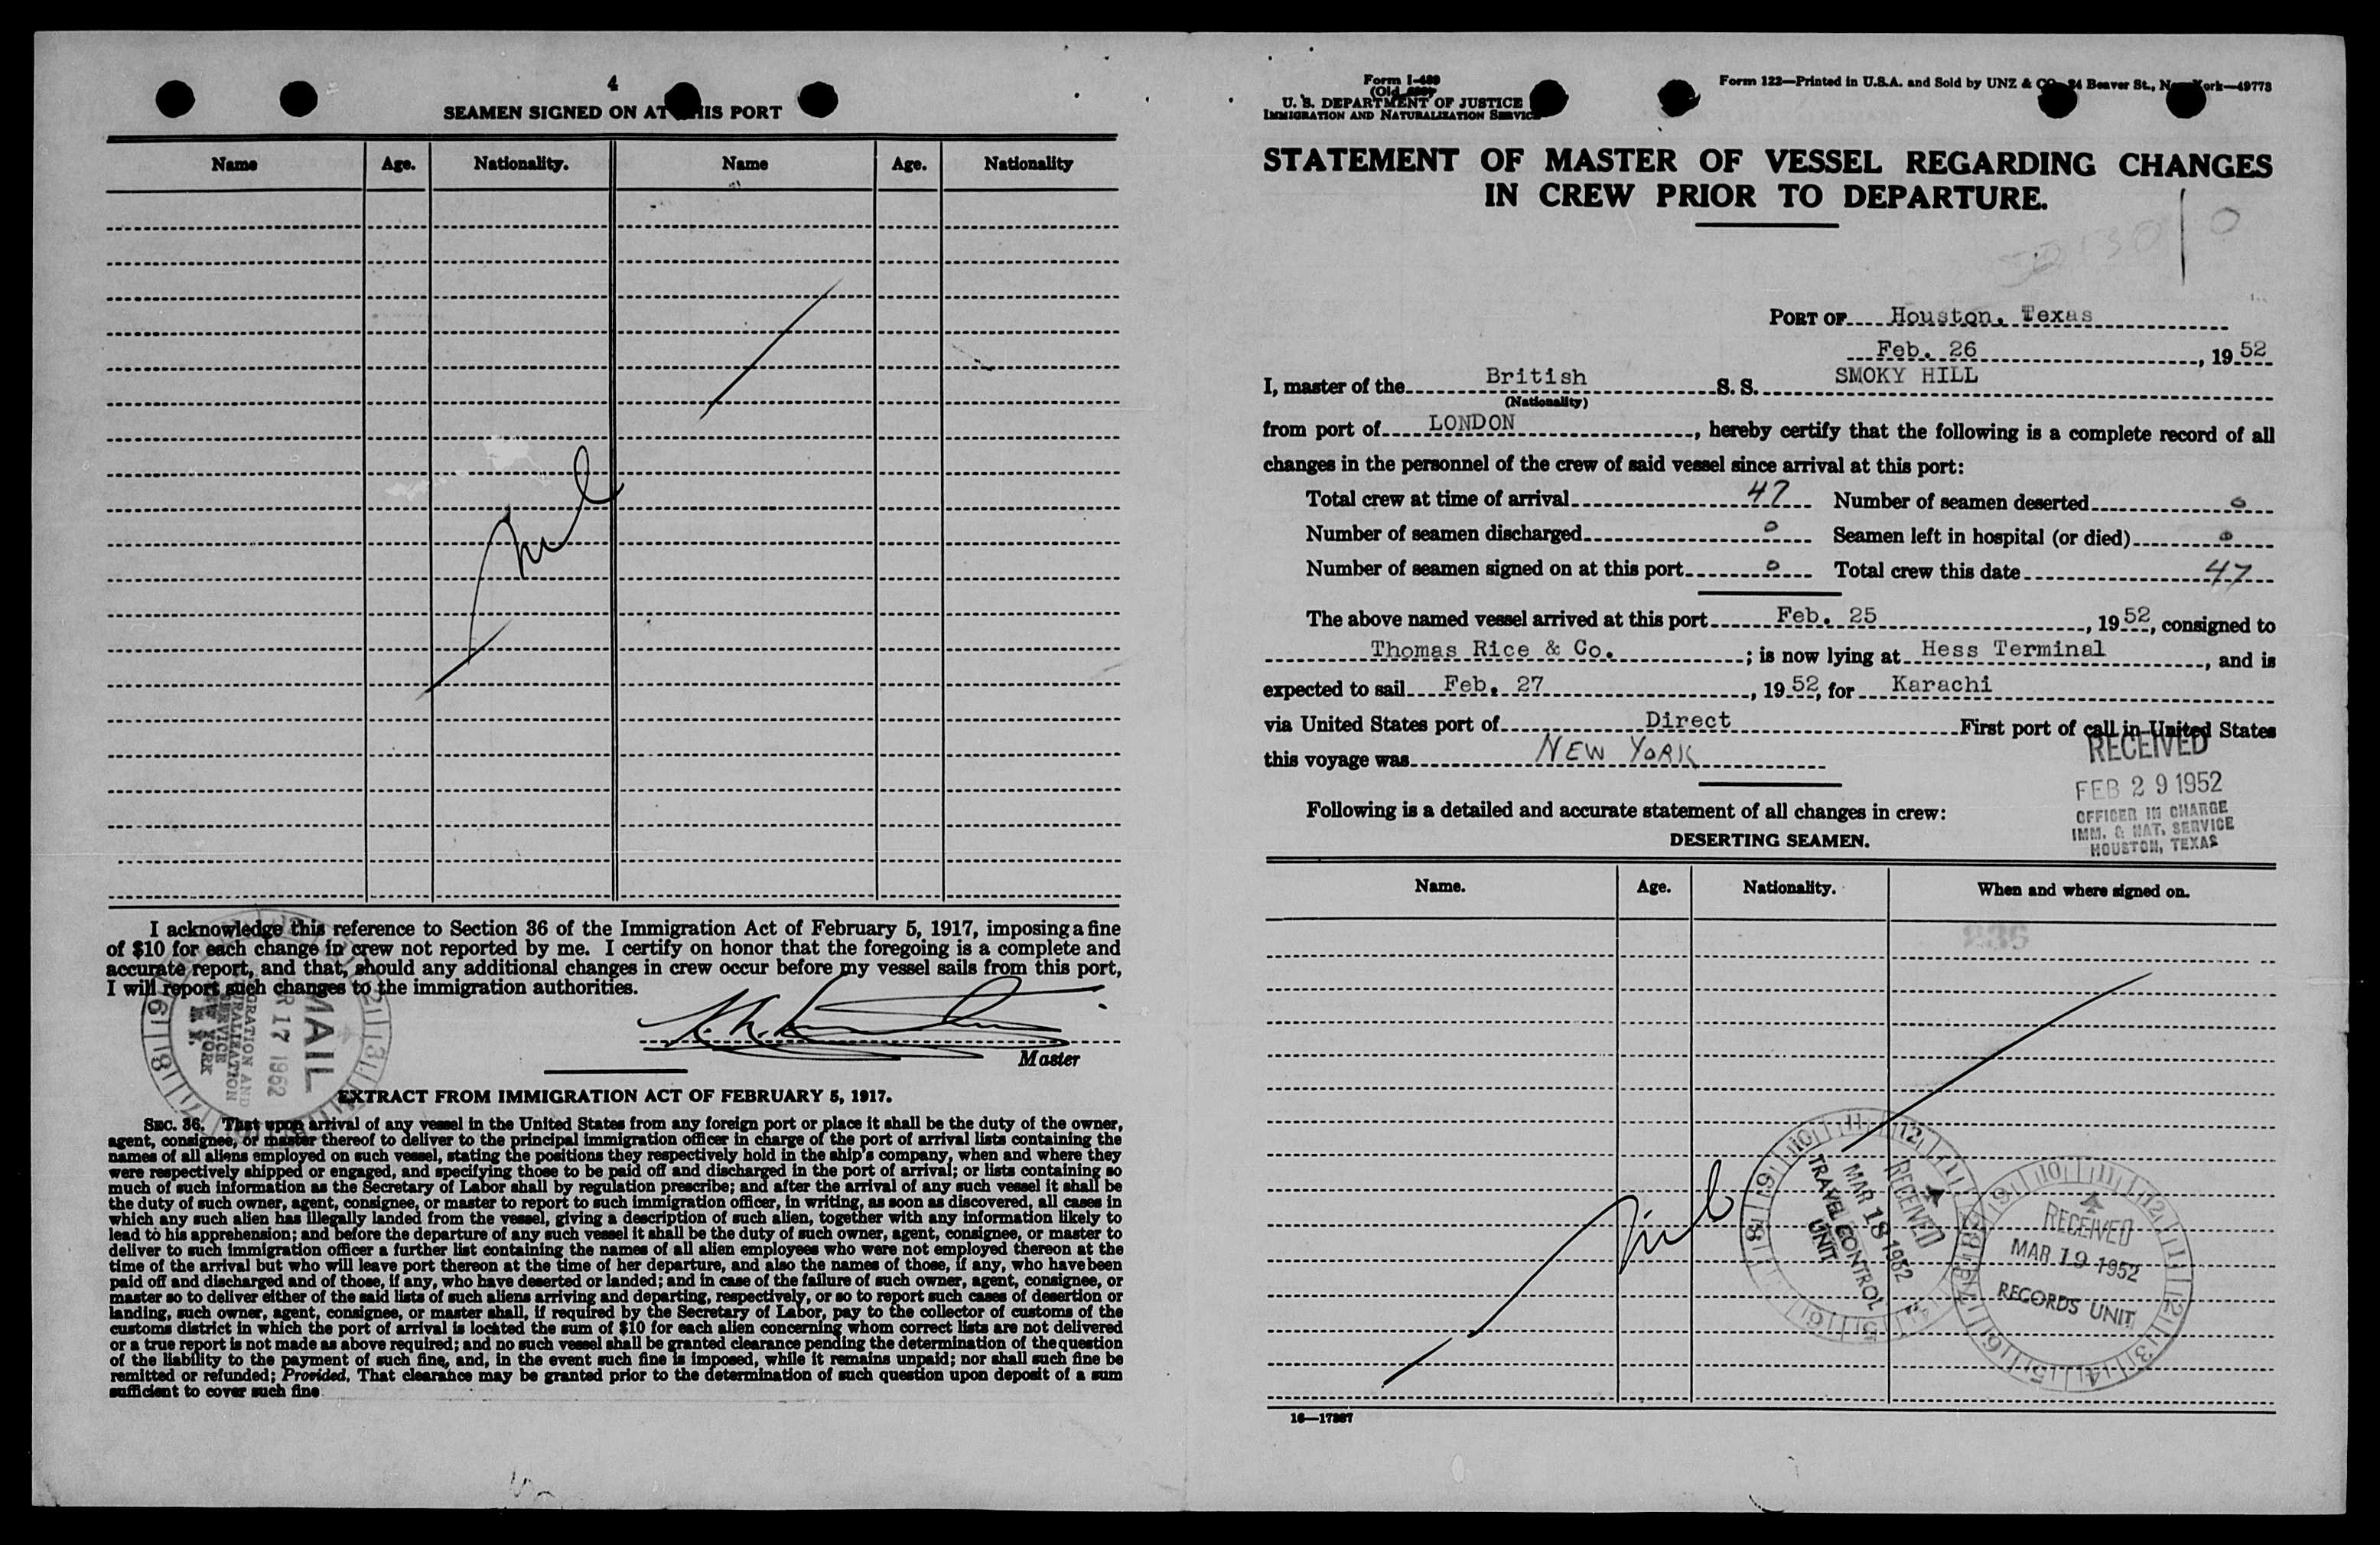 4
SEAMEN SIGNED ON AT THIS PORT
Name Age. Nationality. Name Age. Nationality
Nil
I acknowledge this reference to Section 36 of the Immigration Act of February 5, 1917, imposing a fine
of $10 for each change in crew not reported by me. I certify on honor that the foregoing is a complete and
accurate report, and that, should any additional changes in crew occur before my vessel sails from this port,
I will report such changes to the immigration authorities.
Master
MAIL
17 1952
IMMIGRATION AND
NATURALIZATION
SERVICE
NEW YORK
N. Y.
EXTRACT FROM IMMIGRATION ACT OF FEBRUARY 5, 1917.
SEC. 36. That upon arrival of any vessel in the United States from any foreign port or place it shall be the duty of the owner,
agent, consignee, or master thereof to deliver to the principal immigration officer in charge of the port of arrival lists containing the
names of all aliens employed on such vessel, stating the positions they respectively hold in the ship's company, when and where they
were respectively shipped or engaged, and specifying those to be paid off and discharged in the port of arrival; or lists containing so
much of such information as the Secretary of Labor shall by regulation prescribe; and after the arrival of any such vessel it shall be
the duty of such owner, agent, consignee, or master to report to such immigration officer, in writing, as soon as discovered, all cases in
which any such alien has illegally landed from the vessel, giving a description of such alien, together with any information likely to
lead to his apprehension; and before the departure of any such vessel it shall be the duty of such owner, agent, consignee, or master to
deliver to such immigration officer a further list containing the names of all alien employees who were not employed thereon at the
time of the arrival but who will leave port thereon at the time of her departure, and also the names of those, if any, who have been
paid off and discharged and of those, if any, who have deserted or landed; and in case of the failure of such owner, agent, consignee, or
master so to deliver either of the said lists of such aliens arriving and departing, respectively, or so to report such cases of desertion or
landing, such owner, agent, consignee, or master shall, if required by the Secretary of Labor, pay to the collector of customs of the
customs district in which the port of arrival is located the sum of $10 for each alien concerning whom correct lists are not delivered
or a true report is not made as above required; and no such vessel shall be granted clearance pending the determination of the question
of the liability to the payment of such fine, and, in the event such fine is imposed, while it remains unpaid; nor shall such fine be
remitted or refunded; Provided, That clearance may be granted prior to the determination of such question upon deposit of a sum
sufficient to cover such fine
Form I-489
(Old
U. S. DEPARTMENT OF JUSTICE
IMMIGRATION AND NATURALIZATION SERVICE
Form 122—Printed in U.S.A. and Sold by UNZ & CO. 24 Beaver St., New York—49773
STATEMENT OF MASTER OF VESSEL REGARDING CHANGES
IN CREW PRIOR TO DEPARTURE.
0
PORT OF Houston, Texas
Feb. 26, 1952
I, master of the British S. S. SMOKY HILL
(Nationality)
from port of LONDON, hereby certify that the following is a complete record of all
changes in the personnel of the crew of said vessel since arrival at this port:
Total crew at time of arrival 47 Number of seamen deserted 0
Number of seamen discharged 0 Seamen left in hospital (or died) 0
Number of seamen signed on at this port 0 Total crew this date 47
The above named vessel arrived at this port Feb. 25, 1952, consigned to
Thomas Rice & Co.; is now lying at Hess Terminal, and is
expected to sail Feb. 27, 1952, for Karachi
via United States port of Direct First port of call in United States
this voyage was NEW YORK
RECEIVED
FEB 29 1952
OFFICER IN CHARGE
IMM. & NAT. SERVICE
HOUSTON, TEXAS
Following is a detailed and accurate statement of all changes in crew:
DESERTING SEAMEN.
Name. Age. Nationality. When and where signed on.
235
Nil
RECEIVED
MAR 18 1952
TRAVEL CONTROL
UNIT
RECEIVED
MAR 19 1952
RECORDS UNIT
16—17387